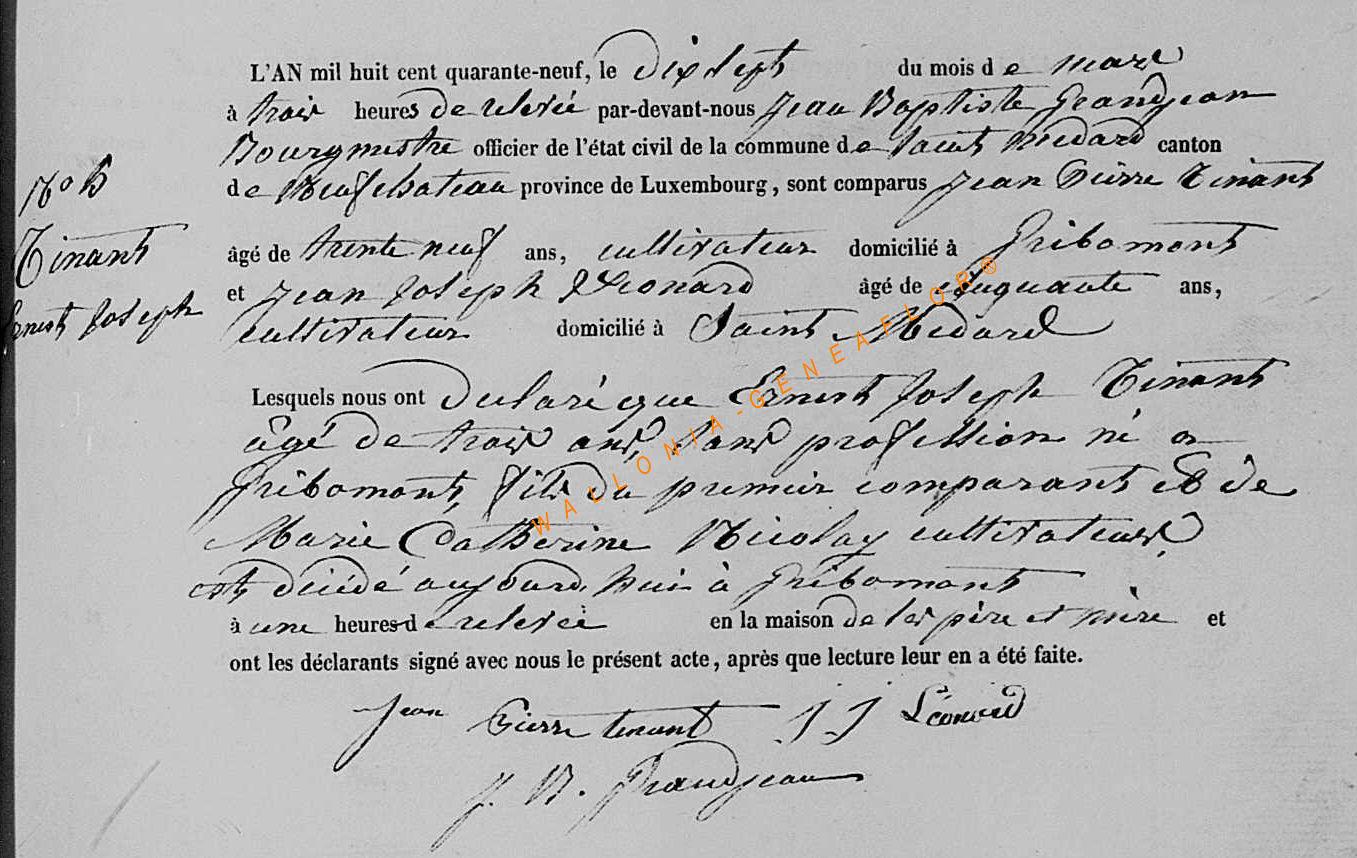 L'AN mil huit cent quarante-neuf, le dix sept du mois de mars
à trois heures de relevée par-devant-nous Jean Baptiste Grandjean
Bourgmestre officier de l'état civil de la commune de Saint Médard canton
de Neufchateau province de Luxembourg, sont comparus Jean Pierre Tinant
Tinant
Ernest Joseph
âgé de trente neuf ans, cultivateur domicilié à Gribomont
et Jean Joseph Léonard âgé de cinquante ans,
cultivateur domicilié à Saint Médard
Lesquels nous ont déclaré que Ernest Joseph Tinant
âgé de trois ans, sans profession né a
Gribomont, fils du premier comparant et de
Marie Catherine Nicolay cultivateurs,
est décédé aujourd'hui à Gribomont
à une heures de relevée en la maison de ses père et mère et
ont les déclarants signé avec nous le présent acte, après que lecture leur en a été faite.
Jean Pierre tinant J J Léonard
J. B. Grandjean
WALLONIA-GENEAFLOR®